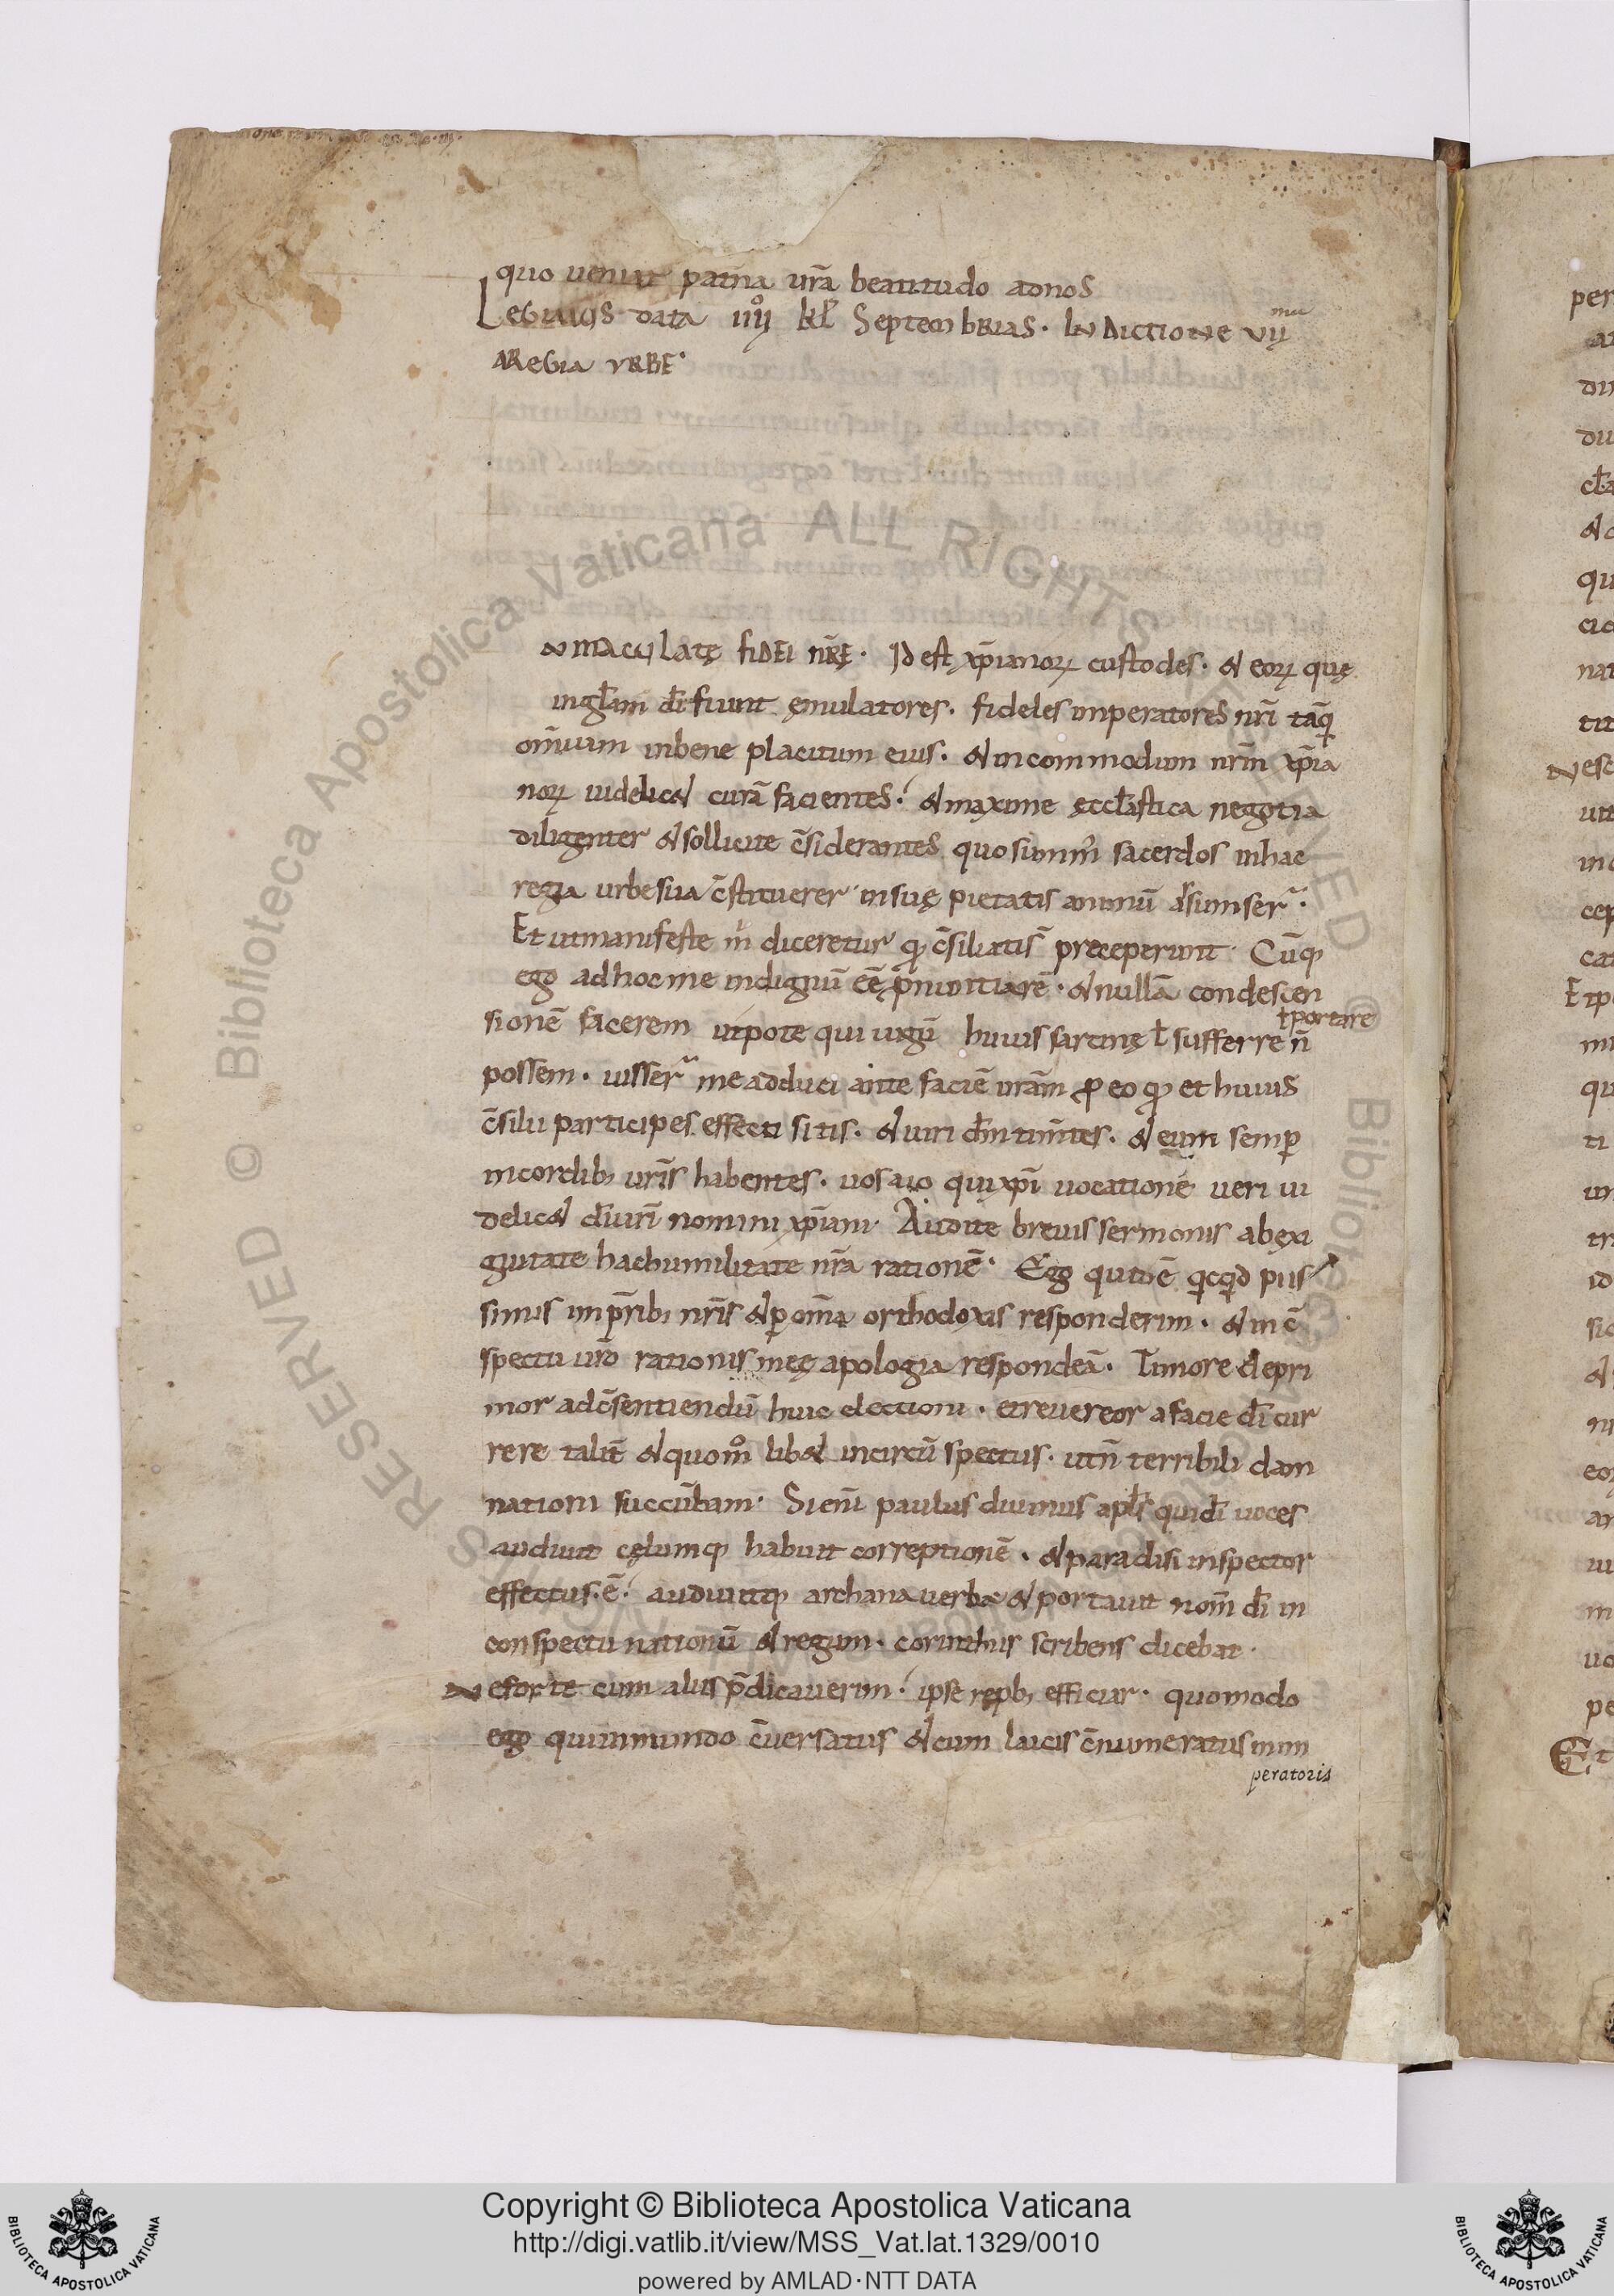 quo veniat pat̄na vr̄a beatitudo adnos
Legimus data iiii° kl̄ Septembrias. Indictione vii ma
aregia vrbe.
nmaculatę fidei nr̄ę. Id est xp̄ianoꝝ custodes. & eoꝝ quę
ingl̄am dī fiunt ęmulatores. fideles imperatores nr̄i taq̄
om̄uiam inbene placitum eius. & incommodum nr̄m xp̄ia
noꝝ uidelic& curā facientes. & maxime ęccl̄astica negotia
diligenter & sollicite c̄siderantes quo summ̄ sacerdos inhac
regia urbe sua c̄stitueretur insuę pietatis animū assumser̄.
Et utmanifeste m̄ diceretur qđ c̄siliatis̄ preceperunt. Cūq;
ego adhoc me indignū eē p̄nuntiarē. & nullā condescen
sionē facerem utpote qui iugū huius sarcinę ł sufferre n̄
ł portare
possem. iusser̄ me adduci ante faciē urām ꝓ eo qđ et huius
c̄silii participes effecti sitis. & uiri dn̄m tim̄tes. & eum semꝑ
incordib; uris̄ habentes. uos aūo qui xp̄i uocationē ueri ui
delic& dī uiri nomini xp̄iani. Audite breuis sermonis abęxi
guitate hac humilitate nr̄a rationē. Ego quidē qcqd piis
simis imp̄rib; nr̄is & ꝑ oma orthodoxis responderim. & in c̄
spectu uro rationis męę apologia respondeā. Timore depri
mor adc̄sentiendū huic electioni. et reuereor a facie dī cur
rere talit̄ & quom° lib& incircū spectus. utn̄ terribili dam
nationi succūbam. Si eni paulus diuinus apl̄s qui dī uoces
audiuit cęlumq; habuit correptionē. & paradisi inspector
effectus. ē. audiuitq; archana uerba & portauit nom̄ dī in
conspectu nationū & regum. corinthiis scribens dicebat.
Neforte cum aliis p̄dicauerim. ipse repb; efficiar. quomodo
ego quiinmundo c̄uersatus & cum laicis c̄numeratus inim
peratoris
Copyright © Biblioteca Apostolica Vaticana
http://digi.vatlib.it/view/MSS_Vat.lat.1329/0010
powered by AMLAD·NTT DATA